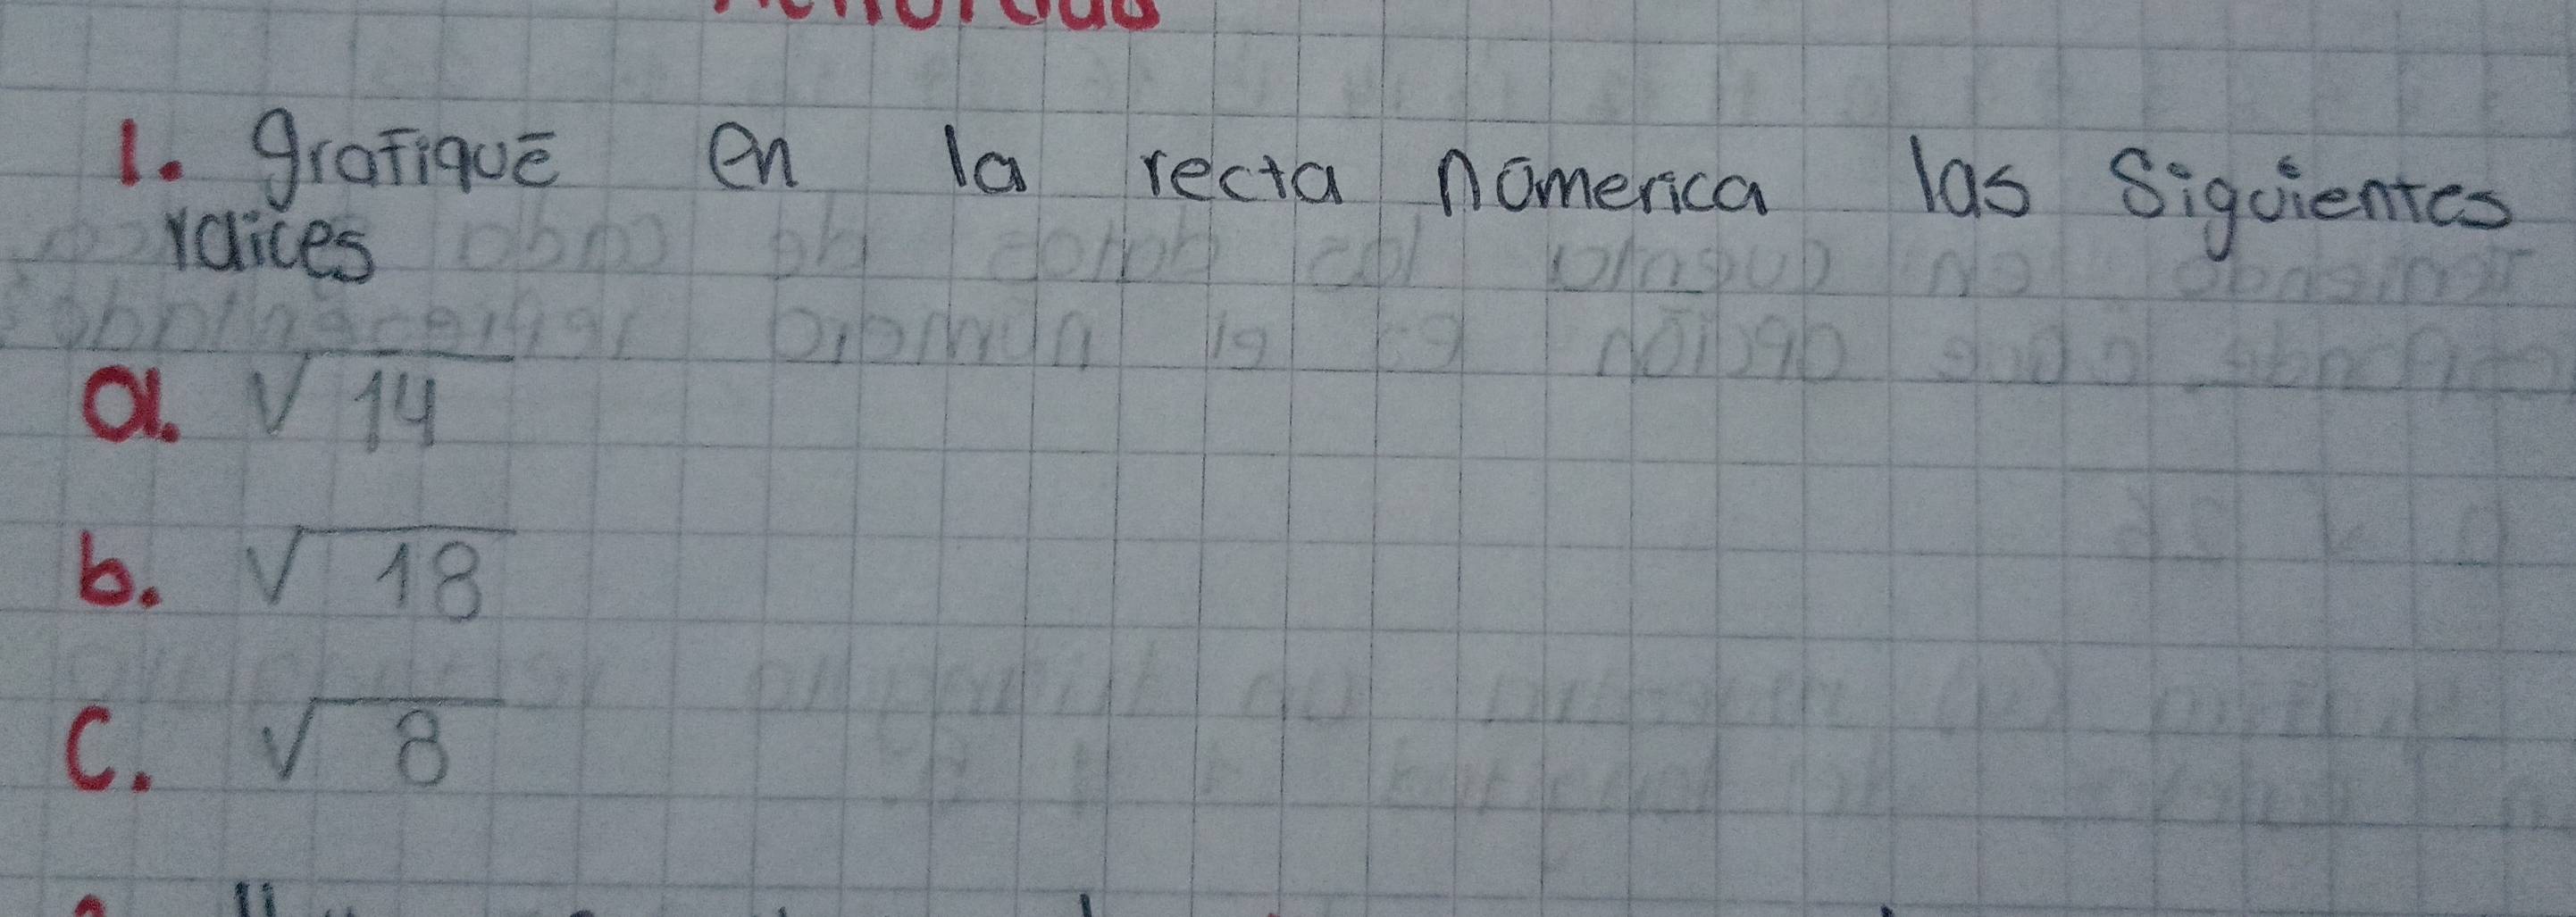 1. grafique en la recta númerica las siguientes
raices
a. √14
b. √18
c. √8